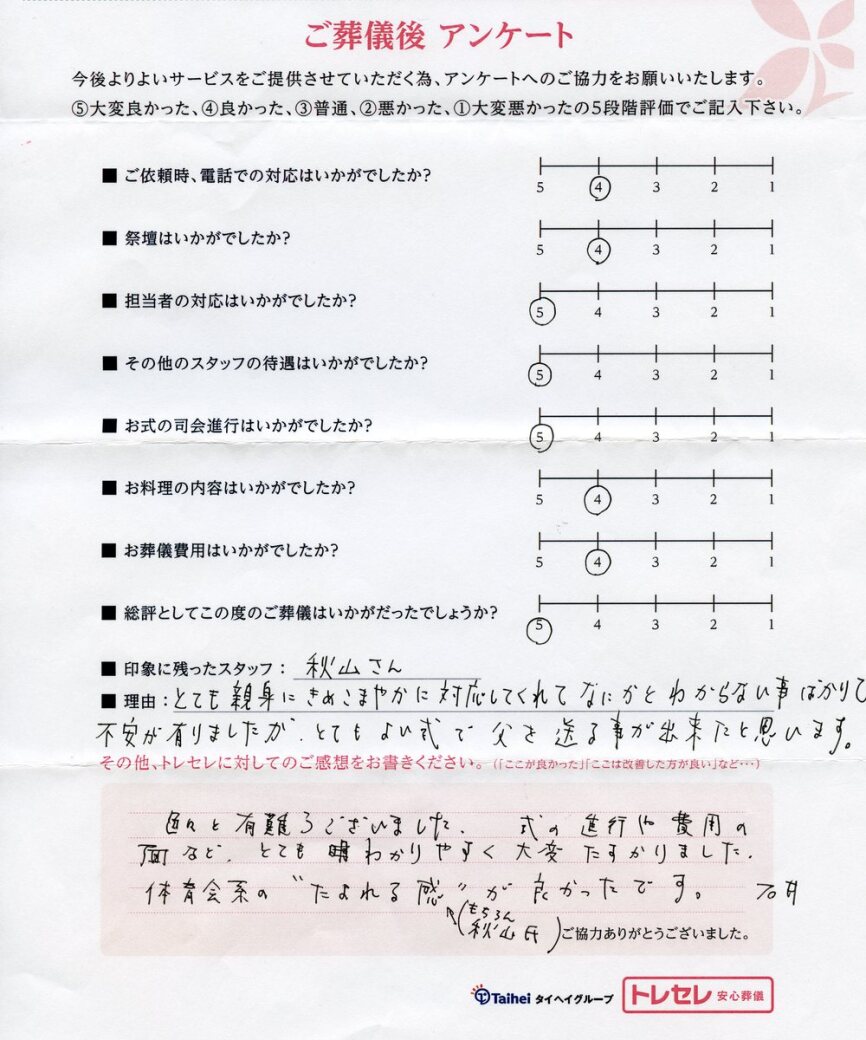 ご葬儀後 アンケート
今後よりよいサービスをご提供させていただく為、アンケートへのご協力をお願いいたします。
⑤大変良かった、④良かった、③普通、②悪かった、①大変悪かったの5段階評価でご記入下さい。
■ ご依頼時、電話での対応はいかがでしたか?
5 4 3 2 1
■ 祭壇はいかがでしたか?
5 4 3 2 1
■ 担当者の対応はいかがでしたか?
5 4 3 2 1
■ その他のスタッフの待遇はいかがでしたか?
5 4 3 2 1
■ お式の司会進行はいかがでしたか?
5 4 3 2 1
■ お料理の内容はいかがでしたか?
5 4 3 2 1
■ お葬儀費用はいかがでしたか?
5 4 3 2 1
■ 総評としてこの度のご葬儀はいかがだったでしょうか?
5 4 3 2 1
■ 印象に残ったスタッフ: 秋山さん
■ 理由: とても親身にきめこまやかに対応してくれてなにかとわからない事ばかりで
不安が有りましたが、とてもよい式で父を送る事が出来たと思います。
その他、トレセレに対してのご感想をお書きください。(「ここが良かった」「ここは改善した方が良い」など…)
色々と有難うございました。 式の進行や費用の
面など、とても わかりやすく大変たすかりました。
体育会系の“たよれる感”が良かったです。
(もちろん
秋山氏)
ご協力ありがとうございました。
Taihei タイヘイグループ トレセレ 安心葬儀